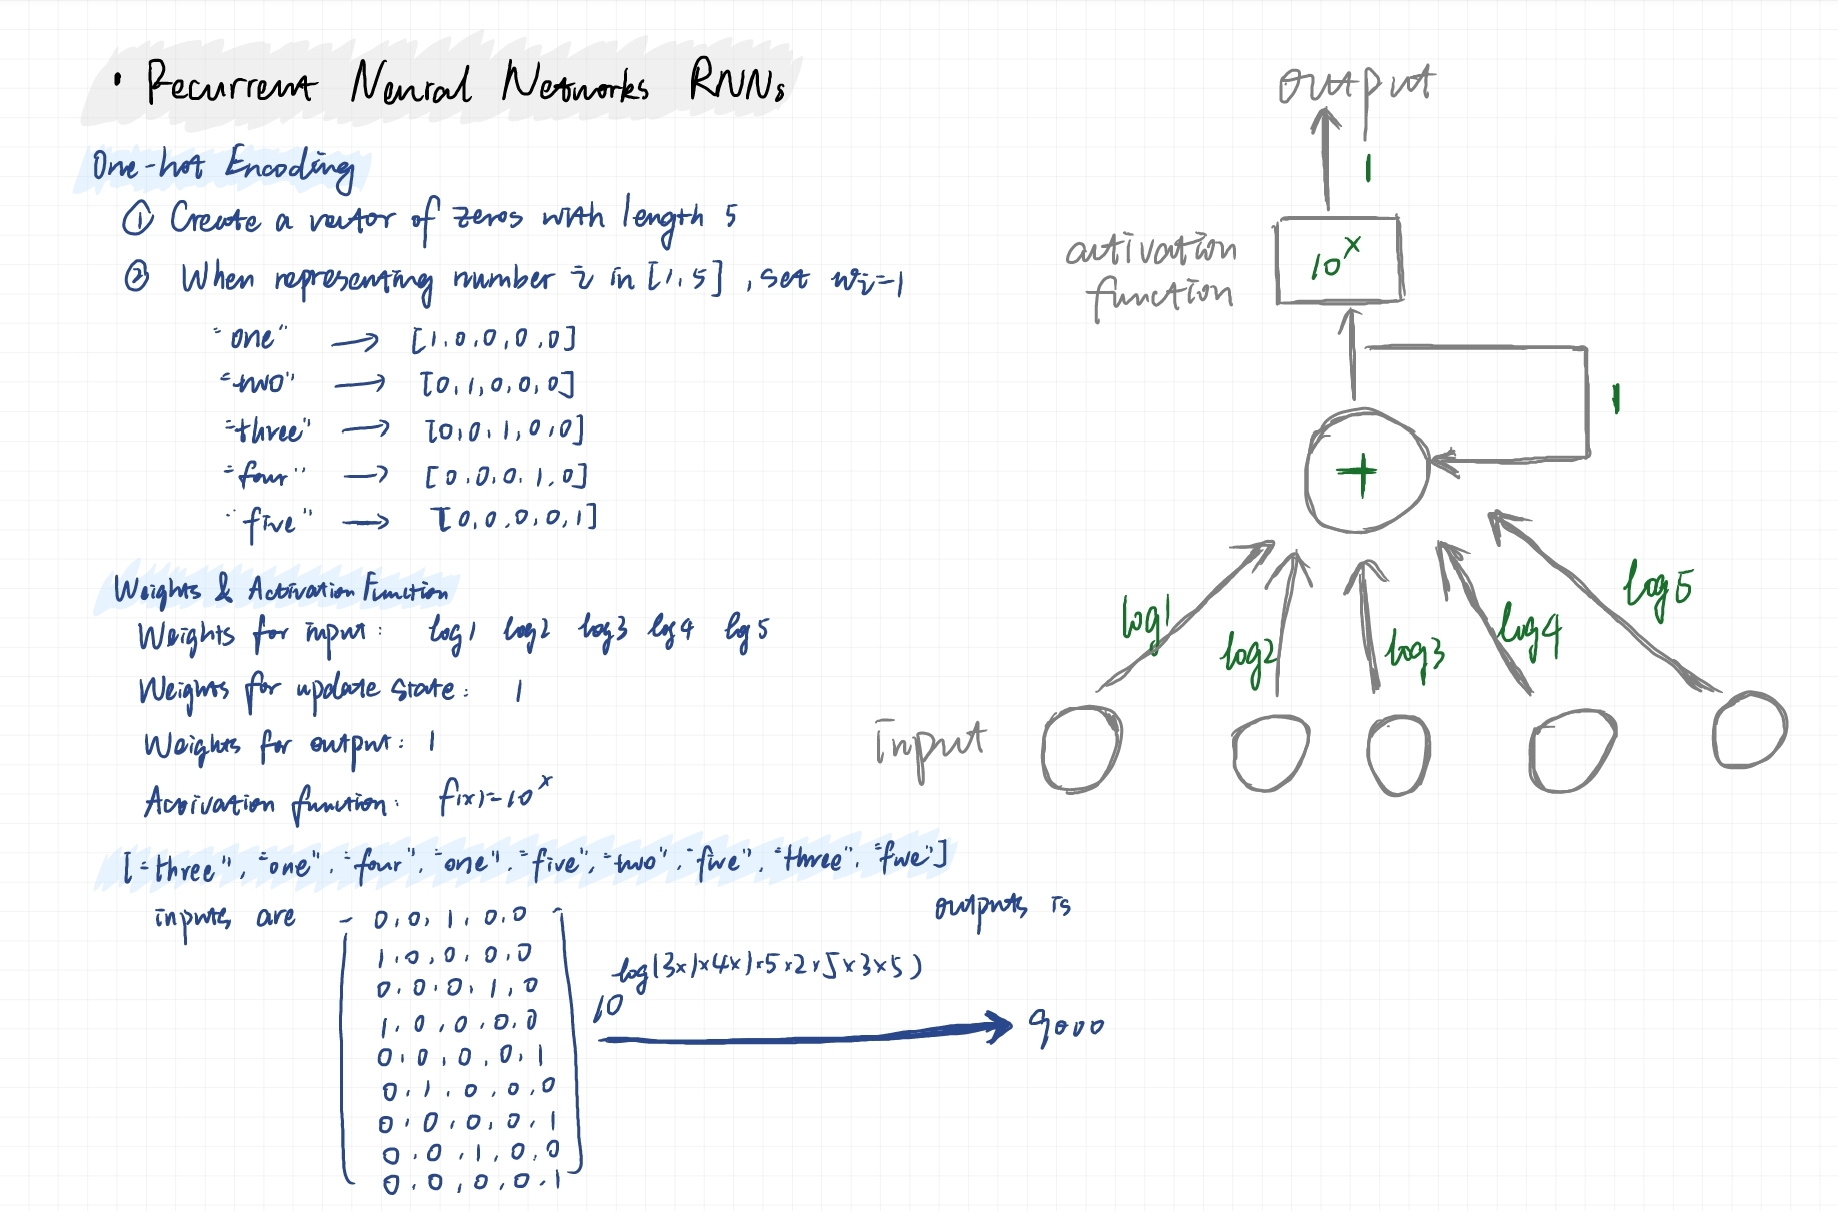 • Recurrent Neural Networks RNNs
One-hot Encoding
① Create a vector of zeros with length 5
② When representing number i in [1,5], set wi=1
"one" → [1,0,0,0,0]
"two" → [0,1,0,0,0]
"three" → [0,0,1,0,0]
"four" → [0,0,0,1,0]
"five" → [0,0,0,0,1]
Weights & Activation Function
Weights for input: log1 log2 log3 log4 log5
Weights for update state: 1
Weights for output: 1
Activation function: f(x)=10^x
["three", "one", "four", "one", "five", "two", "five", "three", "five"]
inputs are
0,0,1,0,0
1,0,0,0,0
0,0,0,1,0
1,0,0,0,0
0,0,0,0,1
0,1,0,0,0
0,0,0,0,1
0,0,1,0,0
0,0,0,0,1
outputs is
10^log(3×1×4×1×5×2×5×3×5)
9000
output
1
activation function
10^x
1
+
log1 log2 log3 log4 log5
input